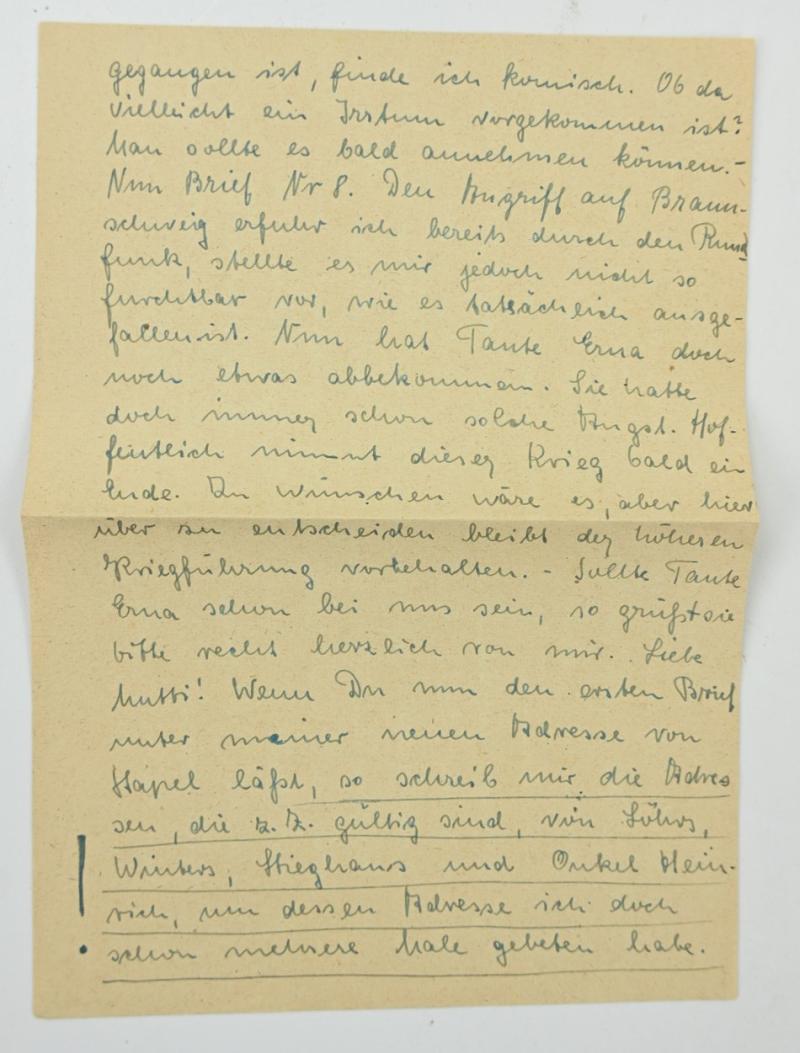 gegangen ist, finde ich komisch. Ob da
vielleicht ein Irrtum vorgekommen ist?
Man sollte es bald annehmen können.-
Nun Brief Nr 8. Den Angriff auf Braun-
schweig erfuhr ich bereits durch den Rund
funk, stellte es mir jedoch nicht so
furchtbar vor, wie es tatsächlich ausge-
fallen ist. Nun hat Tante Erna doch
noch etwas abbekommen. Sie hatte
doch immer schon solche Angst. Hof-
fentlich nimmt dieser Krieg bald ein
Ende. Zu wünschen wäre es, aber hier
über zu entscheiden bleibt der höheren
Kriegführung vorbehalten. - Sollte Tante
Erna schon bei uns sein, so grüßt sie
bitte recht herzlich von mir. Liebe
Mutti! Wenn Du nun den ersten Brief
unter meiner neuen Adresse von
Stapel läßt, so schreib mir die Adres
sen, die z. Z. gültig sind, von Löhrs,
Winters, Stieghans und Onkel Hein-
rich, um dessen Adresse ich doch
schon mehrere Male gebeten habe.